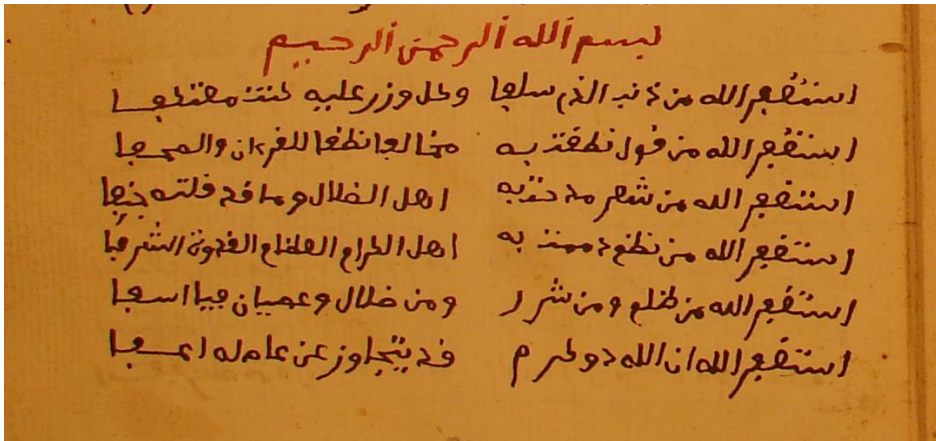 بسم الله الرحمن الرحيم
استغفر الله من ذنب الذي سلفا وكل وزر عليه كنت مقتطفا
استغفر الله من قول نطقت به مخالفا نطقا للقرءان والصحفا
استغفر الله من شعر مدحت به اهل الضلال وما قد قلته
استغفر الله من نظم ذممت به اهل الكرام العظام القدوة الشرفا
استغفر الله من ظلم ومن شرر ومن ضلال وعصيان فيا اسفا
استغفر الله ان الله ذو كرم قد يتجاوز عن عاص له اعسفا